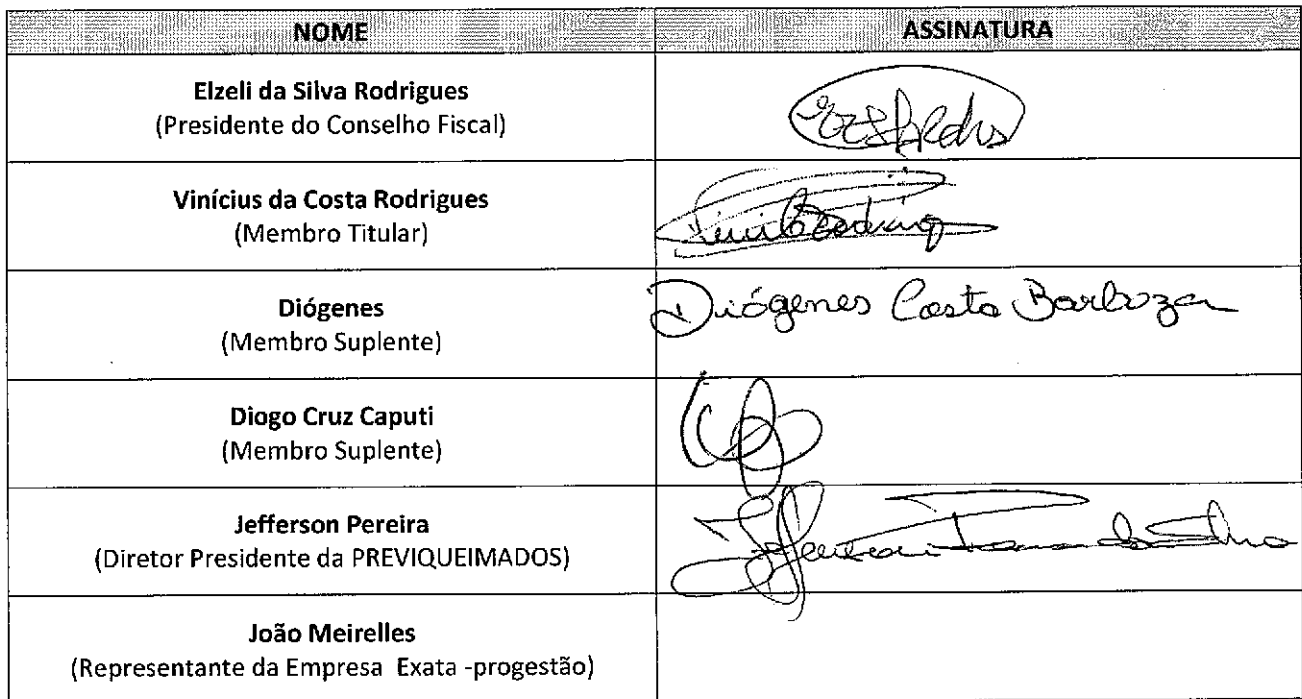 NOME ASSINATURA
Elzeli da Silva Rodrigues
(Presidente do Conselho Fiscal)
Vinícius da Costa Rodrigues
(Membro Titular)
Diógenes Diógenes Costa Barboza
(Membro Suplente)
Diogo Cruz Caputi
(Membro Suplente)
Jefferson Pereira
(Diretor Presidente da PREVIQUEIMADOS)
João Meirelles
(Representante da Empresa Exata -progestão)